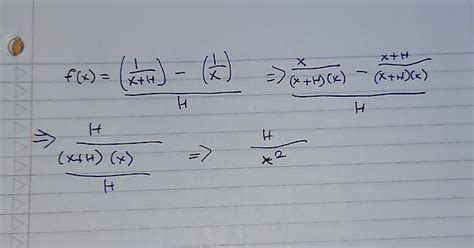 f(x) = ((1/(x+H)) - (1/x))/H => (x/((x+H)(x)) - (x+H)/((x+H)(x)))/H
=> (H/((x+H)(x)))/H => H/x²